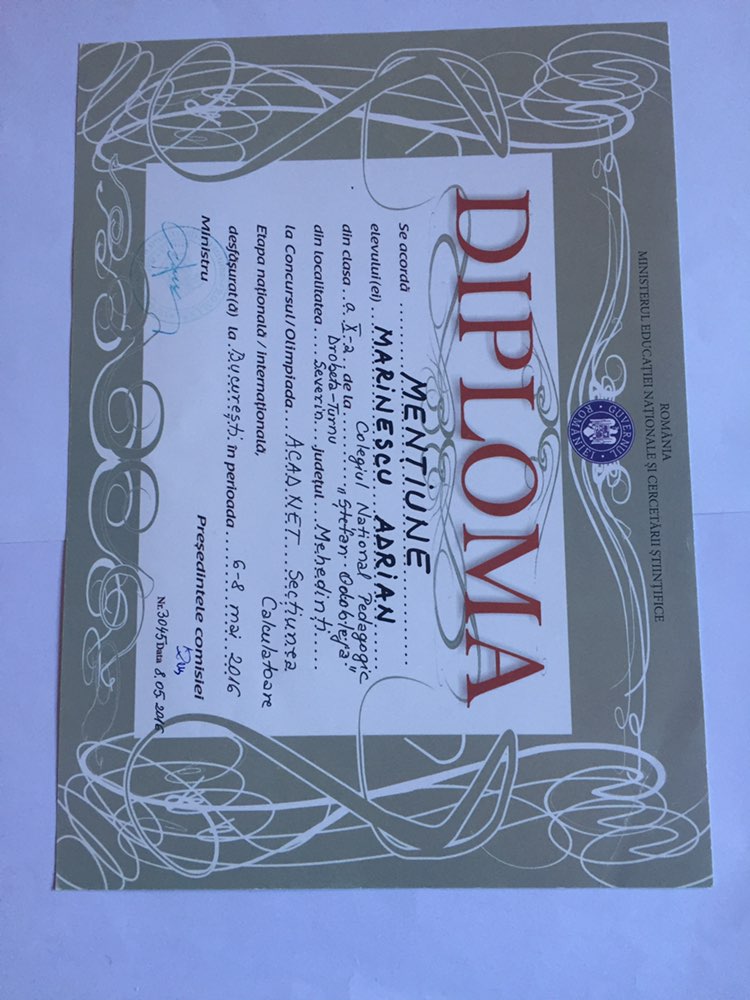 ROMÂNIA
MINISTERUL EDUCAȚIEI NAȚIONALE ȘI CERCETĂRII ȘTIINȚIFICE
GUVERNUL ROMÂNIEI
DIPLOMA
Se acordă ........ MENȚIUNE ........
elevului(ei) ... MARINESCU ADRIAN ...
Colegiul Național Pedagogic
din clasa .. a X-a , de la ........ "Ștefan Odobleja"
Drobeta-Turnu
din localitatea .... Severin .... județul ... Mehedinți ....
la Concursul/Olimpiada ... ACADNET ... Secțiunea
Calculatoare
Etapa națională / internațională,
desfășurat(ă) la .București. în perioada ...... 6-8 mai 2016
Ministru
Președintele comisiei
Nr. 3045 Data 8.05.2016